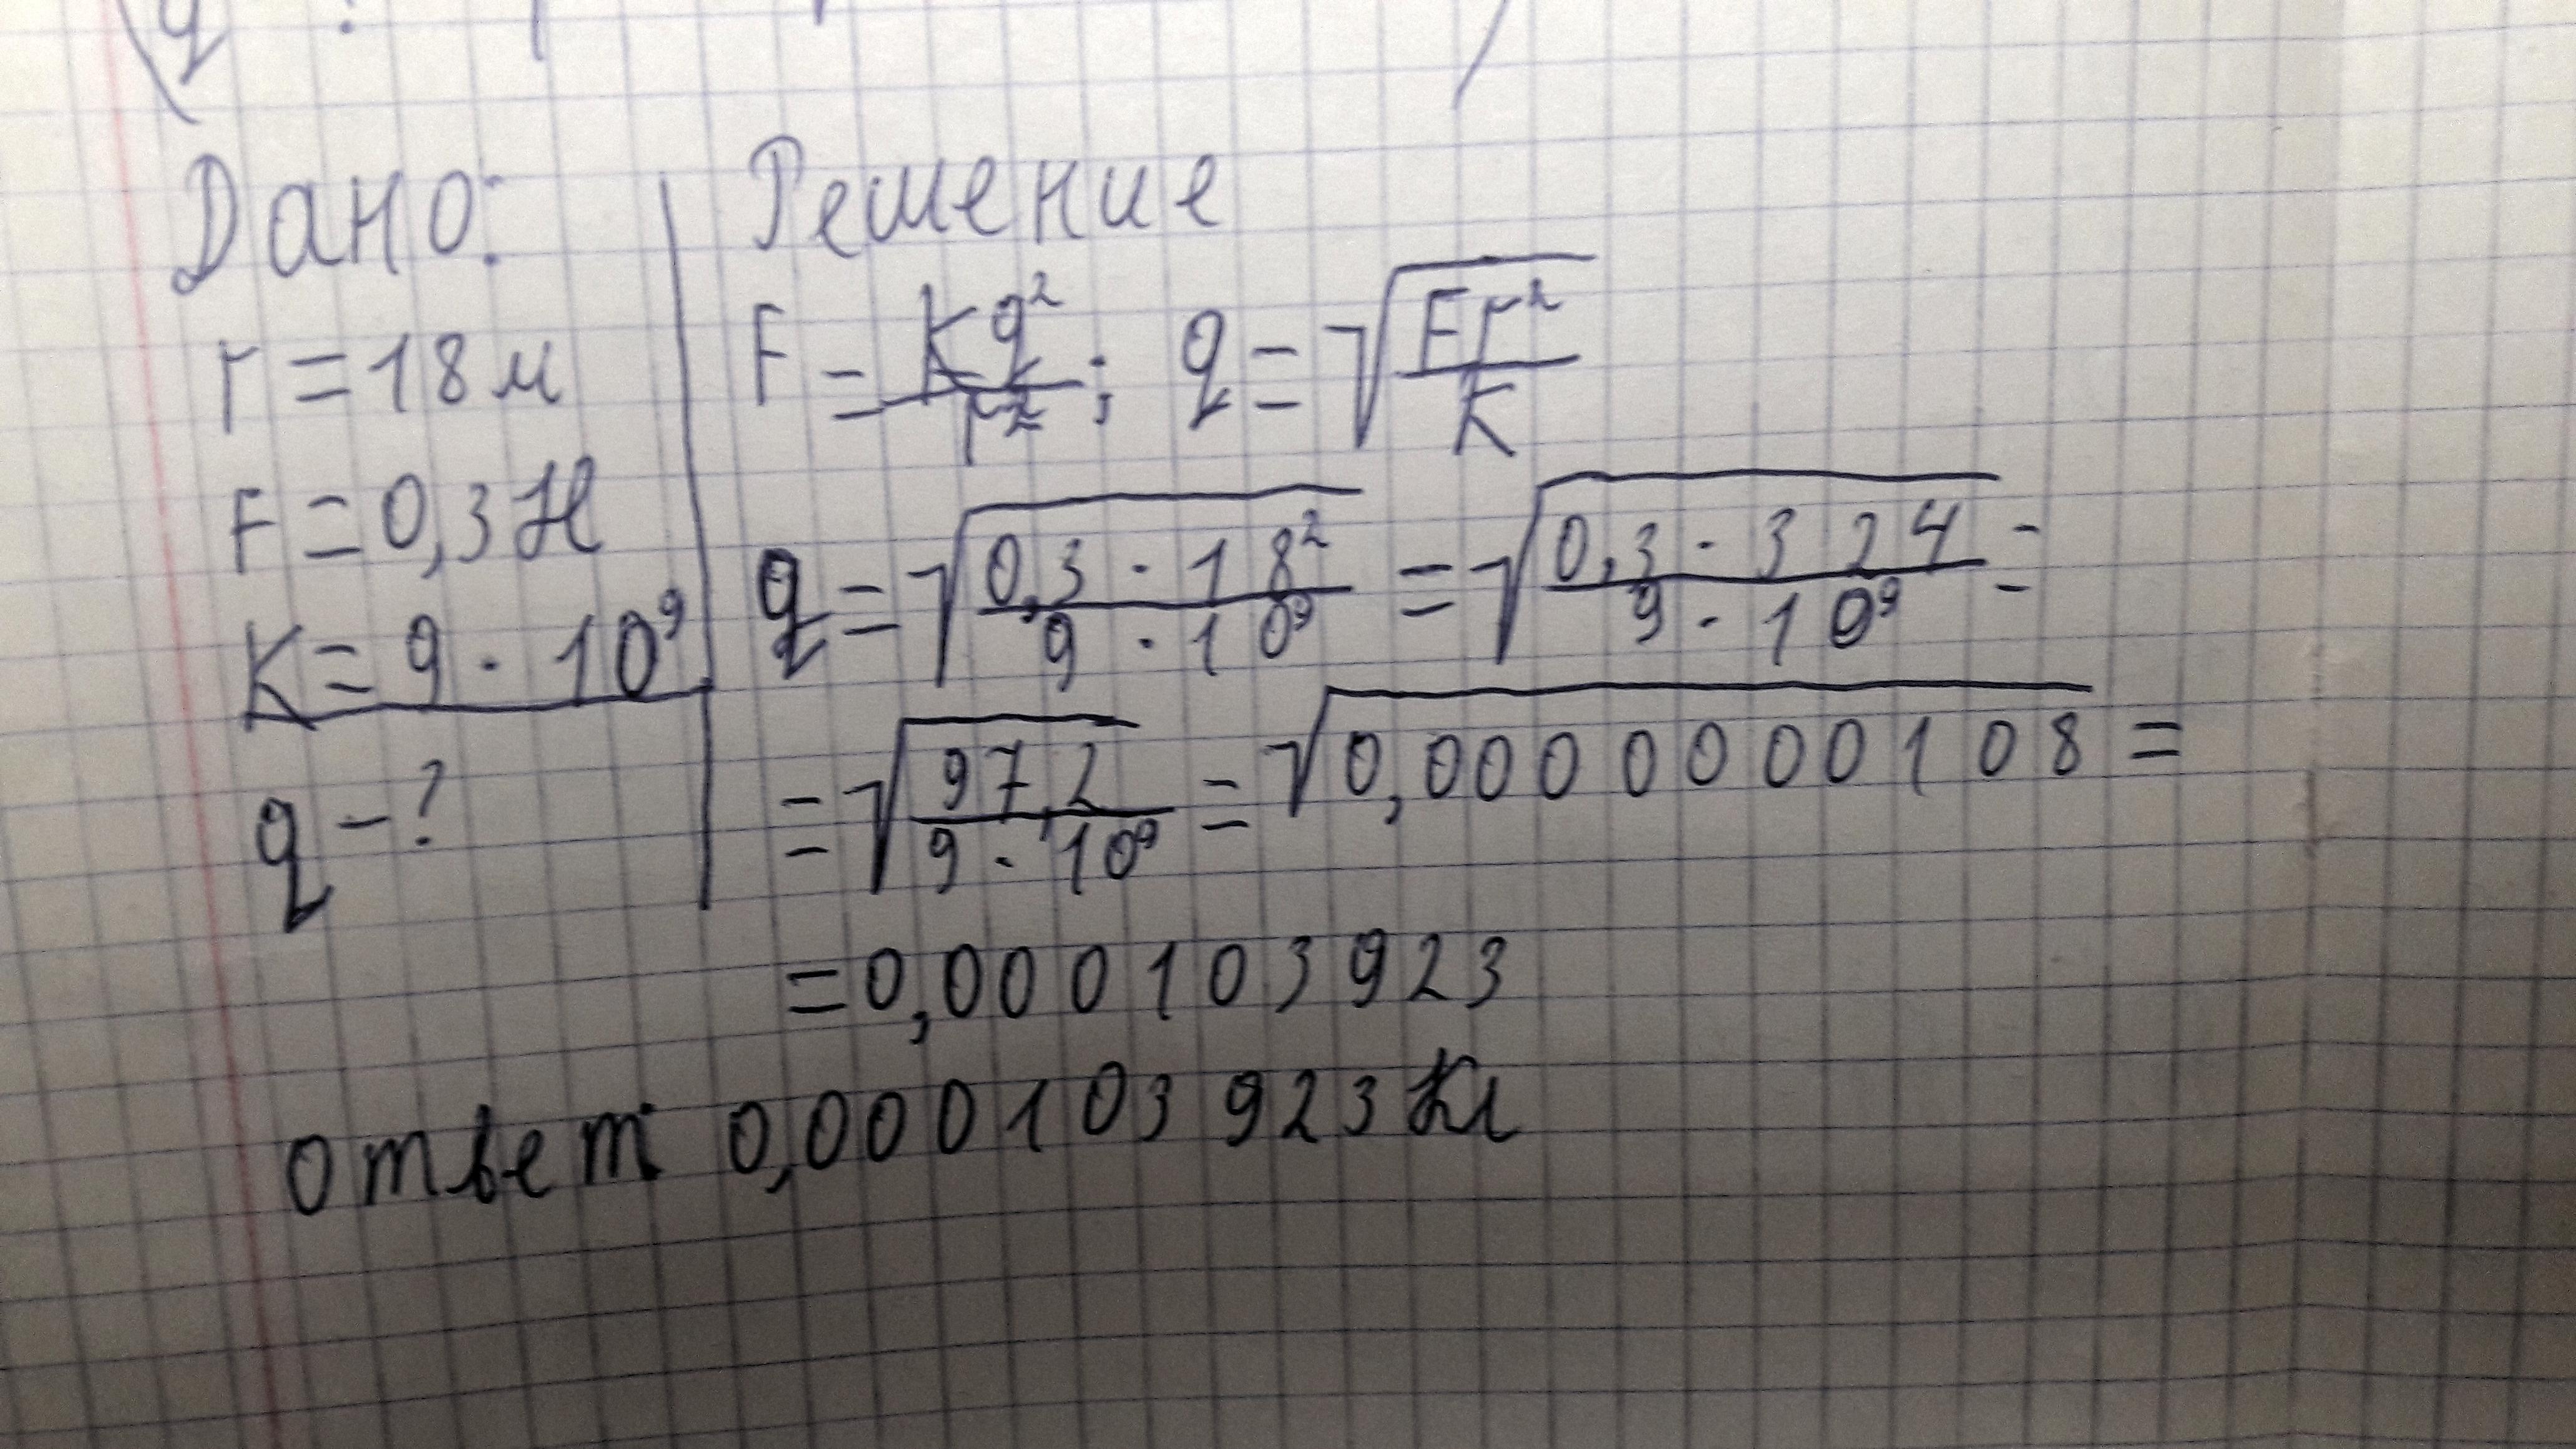 Дано:
r = 18 м
F = 0,3 Н
K = 9 · 10⁹
q - ?
Решение
F = Kq²/r² ; q = √(Fr²/K)
q = √(0,3 · 18²/9 · 10⁹) = √(0,3 · 324/9 · 10⁹) =
= √(97,2/9 · 10⁹) = √0,0000000108 =
= 0,000103923
ответ: 0,000103923 Кл